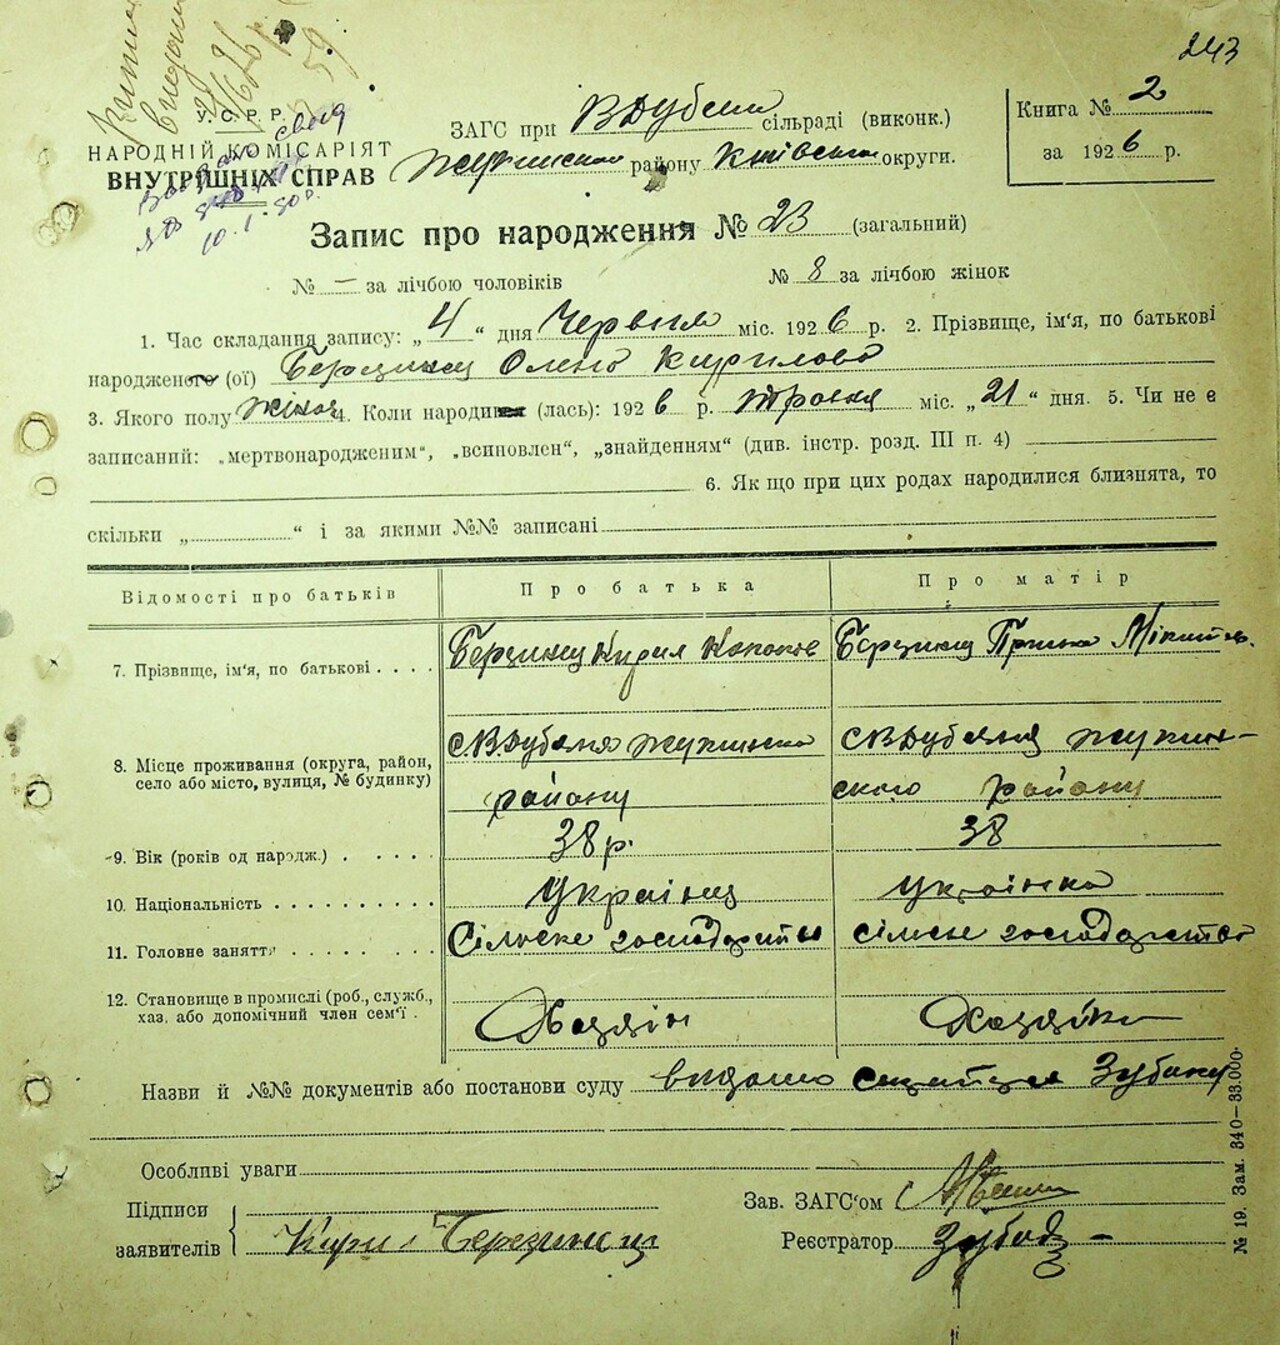 243
У.С.Р.Р.
НАРОДНІЙ КОМІСАРІЯТ
ВНУТРІШНІХ СПРАВ
ЗАГС при В Дубеча сільраді (виконк.)
району Київської округи.
Книга № 2
за 1926 р.
Запис про народження № 23 (загальний)
№ — за лічбою чоловіків № 8 за лічбою жінок
1. Час складання запису: „4“ дня Червня міс. 1926 р. 2. Прізвище, ім'я, по батькові
народженого (ої) Березинец Олена Кирилова
3. Якого полу жіноч 4. Коли народився (лась): 1926 р. травня міс. „21“ дня. 5. Чи не є
записаний: „мертвонародженим“, „всиновлен“, „знайденням“ (див. інстр. розд. III п. 4)
6. Як що при цих родах народилися близнята, то
скільки „ “ і за якими №№ записані
Відомості про батьків Про батька Про матір
7. Прізвище, ім'я, по батькові Березинец Кирил Березинец Микитов.
8. Місце проживання (округа, район, село або місто, вулиця, № будинку) С.В.Дубечня С В Дубечня
району ского району
9. Вік (років од народж.) 38 р. 38
10. Національність Українец Українка
11. Головне заняття Сільске господарство сільске господарство
12. Становище в промислі (роб., служб., хаз. або допомічний член сем'ї Хозяін Хозяйка
Назви й №№ документів або постанови суду видано
Особливі уваги
Підписи
заявителів Кирил Березинец
Зав. ЗАГС'ом
Реєстратор
№ 19. Зам. 340—33.000.